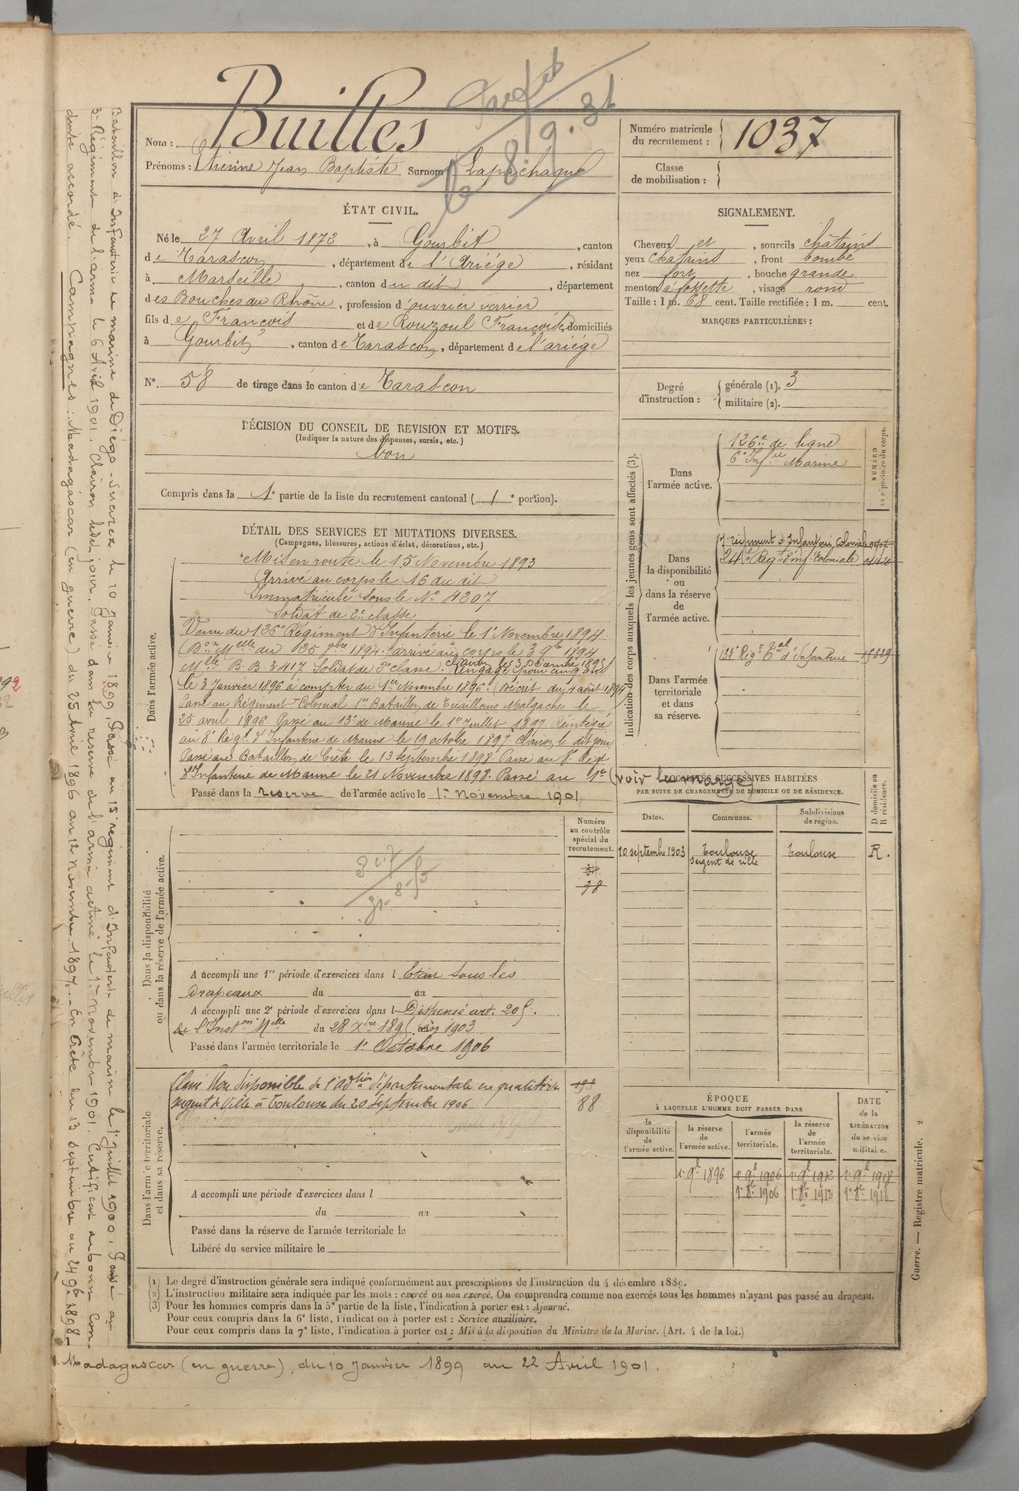 Builles
Nom :
Prénoms : Etienne Jean Baptiste Surnom Lapachaque
le 8.9.36
Numéro matricule du recrutement : 1037
Classe de mobilisation :
ÉTAT CIVIL.
Né le 27 Avril 1873, à Gourbit, canton
de Tarascon, département de l'Ariège, résidant
à Marseille, canton du dit, département
des Bouches du Rhône, profession d'ouvrier verrier
fils de François et de Rouzoul Françoise, domiciliés
à Gourbit, canton de Tarascon, département de l'ariège
N° 58 de tirage dans le canton de Tarascon
SIGNALEMENT.
Cheveux et, sourcils châtains
yeux châtains, front bombé
nez fort, bouche grande
menton à fossette, visage rond
Taille : 1 m. 68 cent. Taille rectifiée : 1 m. cent.
MARQUES PARTICULIÈRES :
Degré d'instruction : générale (1). 3
militaire (2).
DÉCISION DU CONSEIL DE REVISION ET MOTIFS.
(Indiquer la nature des dispenses, sursis, etc.)
bon
Compris dans la 1e partie de la liste du recrutement cantonal (1e portion).
DÉTAIL DES SERVICES ET MUTATIONS DIVERSES.
(Campagnes, blessures, actions d'éclat, décorations, etc.)
Dans l'armée active.
Mis en route le 15 Novembre 1893
Arrivé au corps le 16 du dit
Immatriculé sous le N° 4207
Soldat de 2e classe
Venu du 126e Régiment d'Infanterie le 1er Novembre 1894
arrivé au corps le 3 9bre 1894
Soldat de 2e classe. Clairon le 3 Décembre 1895
Rengagé pour cinq ans
le 3 Janvier 1896 à compter du 1er Novembre 1896. (Décret du 4 août 1894
Passé au Régiment Colonial 1er Bataillon de Tirailleurs Malgaches le
25 avril 1896 Passé au 13e de Marine le 1er Juillet 1897 Réintégré
au 8e Régt d'Infanterie de Marine le 19 octobre 1897 Clairon le dit jour
Passé au Bataillon de Crète le 13 Septembre 1898 Passé au 8e Régt
d'Infanterie de Marine le 21 Novembre 1898. Passé au 1er (voir la marge)
Passé dans la reserve de l'armée active le 1er Novembre 1901
Indication des corps auxquels les jeunes gens sont affectés (3).
Dans l'armée active.
126e de ligne
6e Infie Marine
Dans la disponibilité ou dans la réserve de l'armée active.
7 régiment d'Infanterie Coloniale
24e Régt d'Inf Coloniale
Dans l'armée territoriale et dans sa réserve.
133e Régt Tal d'Infanterie
LOCALITÉS SUCCESSIVES HABITÉES
PAR SUITE DE CHANGEMENTS DE DOMICILE OU DE RÉSIDENCE.
Dates. Communes. Subdivisions de région. D domicile ou R résidence.
10 septembre 1903 Toulouse sergent de ville Toulouse R.
Dans la disponibilité ou dans la réserve de l'armée active.
Numéro au contrôle spécial du recrutement.
A accompli une 1re période d'exercices dans l
drapeaux du au
A accompli une 2e période d'exercices dans l Dispensé art. 205.
de l'Inston Melle du 28 Xbre 1895 en 1903
Passé dans l'armée territoriale le 1er Octobre 1906
Dans l'armée territoriale et dans sa réserve.
Classé Non disponible de l'adtion départementale en qualité de
sergent de Ville à Toulouse du 20 Septembre 1906
88
A accompli une période d'exercices dans l
du au
Passé dans la réserve de l'armée territoriale le
Libéré du service militaire le
ÉPOQUE
À LAQUELLE L'HOMME DOIT PASSER DANS
DATE de la LIBÉRATION du service militaire.
la disponibilité de l'armée active. la réserve de l'armée active. l'armée territoriale. la réserve de l'armée territoriale.
1er 9bre 1896 1er 9bre 1906 1er 9bre 1912 1er 9bre 1918
1er 8bre 1906
(1) Le degré d'instruction générale sera indiqué conformément aux prescriptions de l'instruction du 4 décembre 1889.
(2) L'instruction militaire sera indiquée par les mots : exercé ou non exercé. On comprendra comme non exercés tous les hommes n'ayant pas passé au drapeau.
(3) Pour les hommes compris dans la 5e partie de la liste, l'indication à porter est : Ajourné.
Pour ceux compris dans la 6e liste, l'indication à porter est : Service auxiliaire.
Pour ceux compris dans la 7e liste, l'indication à porter est : Mis à la disposition du Ministre de la Marine. (Art. 4 de la loi.)
Guerre. — Registre matricule. 2
Bataillon d'Infanterie de marine de Diégo Suarez le 10 janvier 1899. Passé au 15e régiment d'Infanterie de marine le 1er Juillet 1900. Passé au
3e Régiment de l'arme le 6 Avril 1901. Clairon ledit jour. Passé dans la reserve de l'armée active le 1er Novembre 1901. Certificat de bonne con-
duite accordé. Campagnes : Madagascar (en guerre) du 25 Avril 1896 au 12 Novembre 1897. - En Crète du 13 Septembre au 24 9bre 1898 -
Madagascar (en guerre), du 10 Janvier 1899 au 22 Avril 1901.